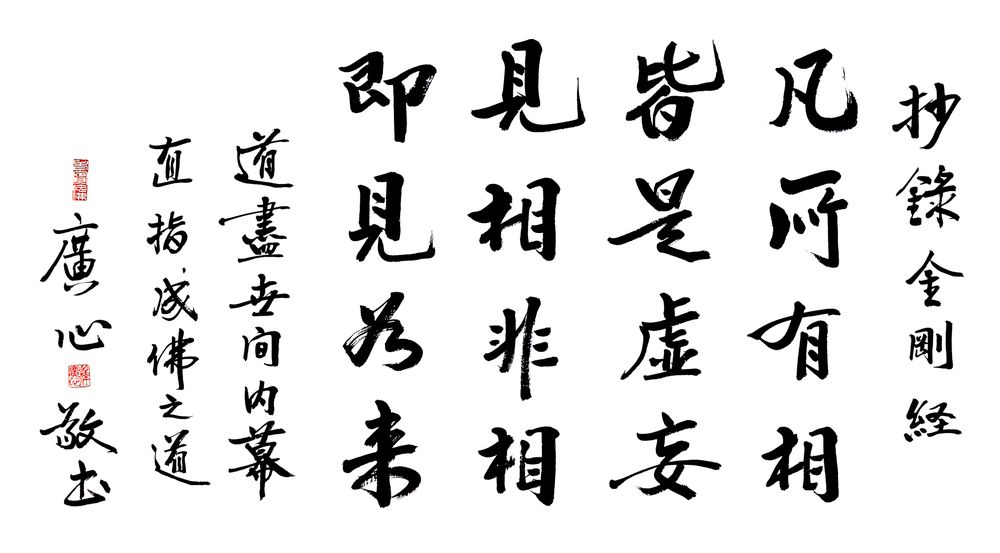 抄錄金剛経
凡所有相
皆是虚妄
見相非相
即見如来
道盡世间内幕
直指成佛之道
廣心敬书